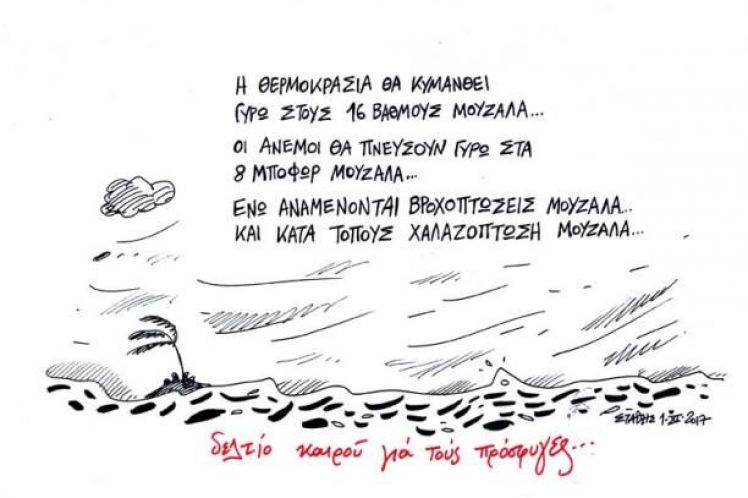 Η ΘΕΡΜΟΚΡΑΣΙΑ ΘΑ ΚΥΜΑΝΘΕΙ
ΓΥΡΩ ΣΤΟΥΣ 16 ΒΑΘΜΟΥΣ ΜΟΥΖΑΛΑ...
ΟΙ ΑΝΕΜΟΙ ΘΑ ΠΝΕΥΣΟΥΝ ΓΥΡΩ ΣΤΑ
8 ΜΠΟΦΩΡ ΜΟΥΖΑΛΑ...
ΕΝΩ ΑΝΑΜΕΝΟΝΤΑΙ ΒΡΟΧΟΠΤΩΣΕΙΣ ΜΟΥΖΑΛΑ...
ΚΑΙ ΚΑΤΑ ΤΟΠΟΥΣ ΧΑΛΑΖΟΠΤΩΣΗ ΜΟΥΖΑΛΑ...
ΣΤΑΘΗΣ 1-XII-2017
δελτίο καιρού γιά τούς πρόσφυγες...